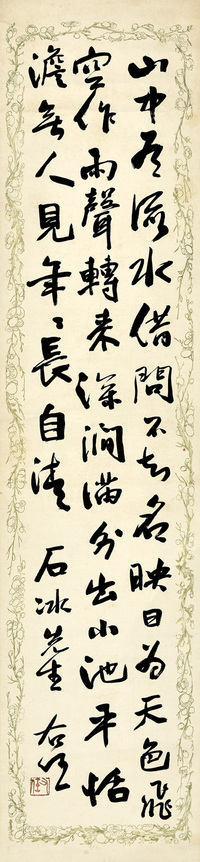 山中有流水借問不知名映日為天色飛
空作雨聲轉来深澗滿分出小池平恬
澹無人見年〻長自清 石冰先生 右任